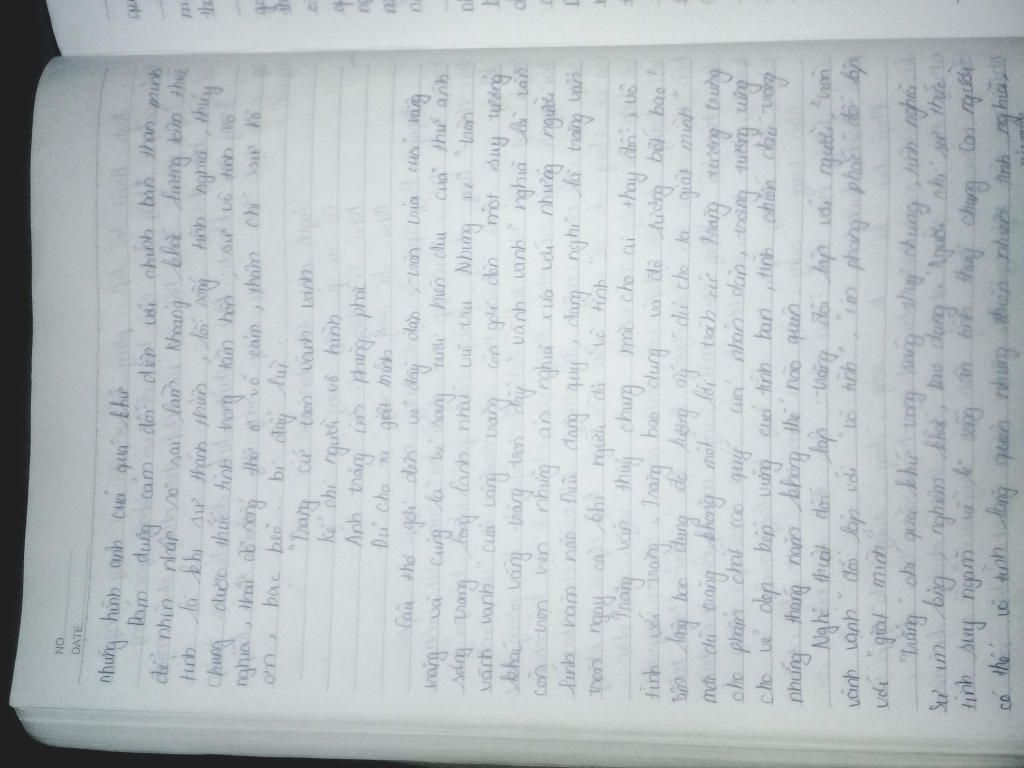 NO.
DATE
những hình ảnh của quá khứ
Dám dũng cảm đối diện với chính bản thân mình
để nhìn nhận xô sai lầm thang khốc lương tâm thức
tỉnh là khi sự thành thìn, lối sống tình nghĩa, thủy
chung được thức tỉnh trong tâm hồn, sự vô tình vô
nghĩa, thái độ sống thờ ơ vô cảm, thậm chí sự vô
ơn, bạc bẽo bị đẩy lùi
"Trăng cứ tròn vành vạnh
Kể chi người vô tình
Ánh trăng im phăng phắc
Đủ cho ta giật mình"
Câu thơ gợi đến vẻ đẹp, tròn trịa của vầng
trăng và cũng là vẻ sáng tươi thìn dịu của thứ ánh
sáng trong lành mát vĩnh cửu. Nhưng vẻ "tròn
vành vạnh" của vầng trăng còn gợi đến một suy tưởng
khác vầng trăng tròn đầy "vành vạnh" nghĩa là vẫn
còn trọn vẹn những ân nghĩa xưa với những người
lính năm nào. Điều đáng quý, đáng nghĩ là trăng vẫn
tròn ngay cả khi người đã vô tình
Trăng vẫn thủy chung mặc cho ai thay đổi vô
tình với trăng. Trăng bao dung và độ lượng biết bao!
Tấm lòng bao dung độ lượng ấy "đủ cho ta giật mình"
mặc dù trăng không một lời trách cứ. Trăng tượng trưng
cho phẩm chất cao quý của nhân dân, trăng tượng trưng
cho vẻ đẹp bền vững của tình bạn, tình chiến đấu trong
những tháng năm không thể nào quên.
Nghệ thuật đối lập: trăng đối lập với người, "tròn
vành vạnh" đối lập với "vô tình", "im phăng phắc" đối lập
với "giật mình"
"Trăng" chỉ quá khứ trong sáng thủy chung, tình nghĩa
sự im lặng, nghiêm khắc, bao dung. "Người" chỉ sự thức
tỉnh suy ngẫm về lẽ sống ân tình thủy chung. Con người
có thể vô tình lãng quên nhưng thiên nhiên tình nghĩa,